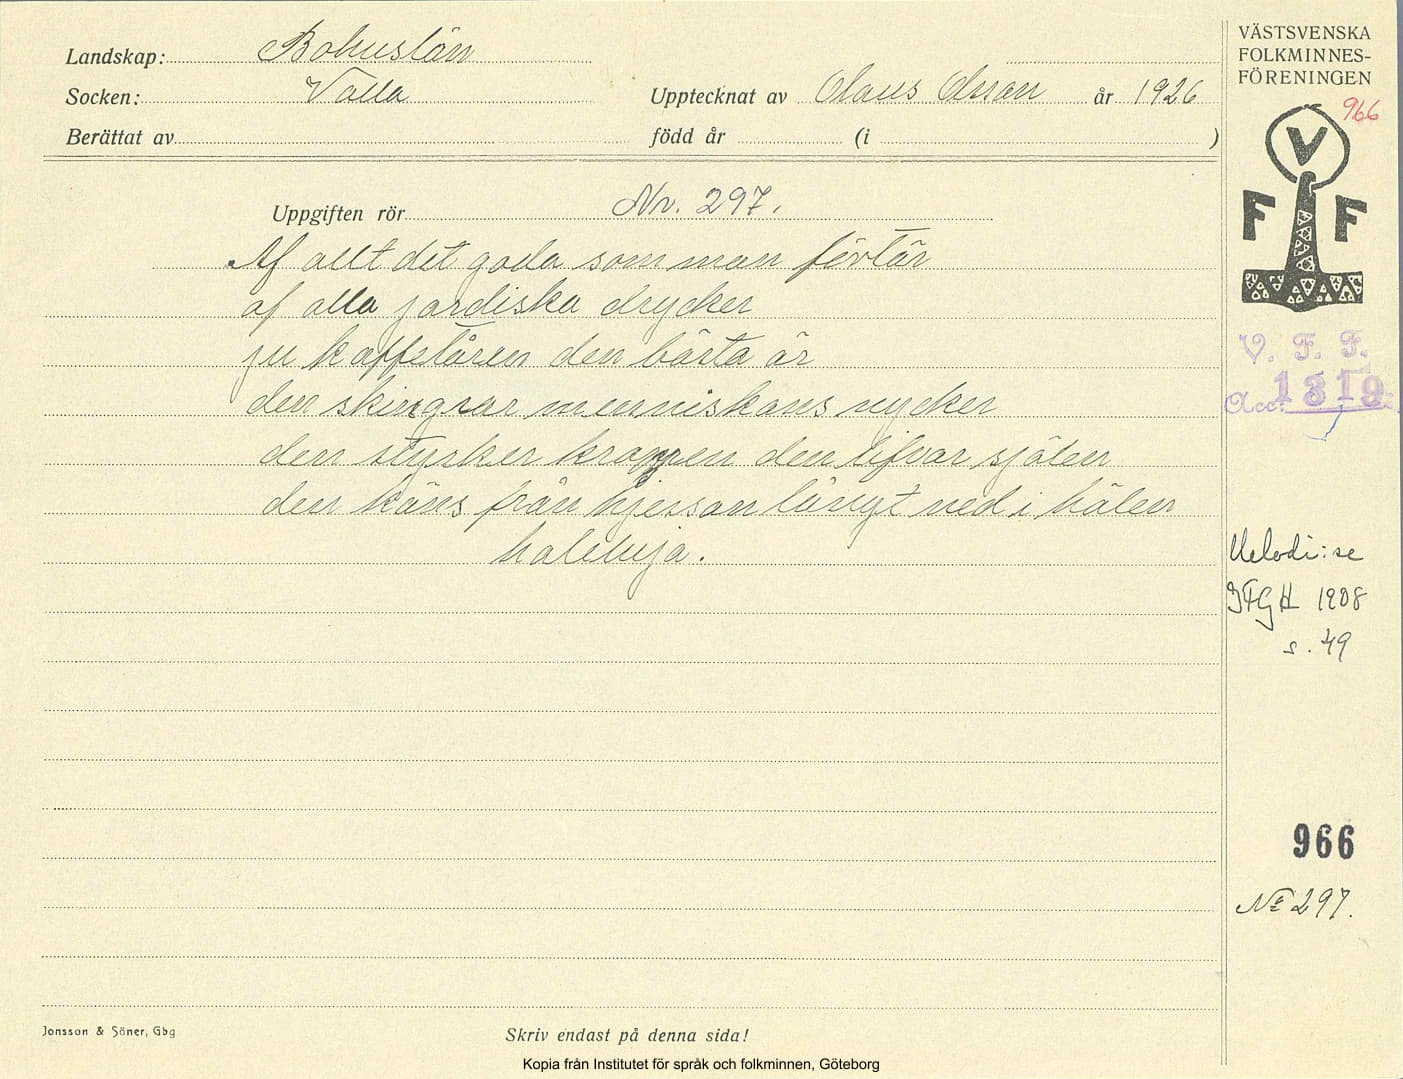 Landskap: Bohuslän
Socken: Valla
Upptecknat av Olaus Olsson år 1926
Berättat av
född år (i )
Uppgiften rör Nr. 297.
Af allt det goda som man förtär
af alla jordiska drycker
ju kaffetåren den bästa är
den skingrar menniskans nycker
den styrker kroppen den lifvar själen
den käns från hjessan långt ned i hälen
haleluja.
Jonsson & Söner, Gbg
Skriv endast på denna sida!
Kopia från Institutet för språk och folkminnen, Göteborg
VÄSTSVENSKA
FOLKMINNES-
FÖRENINGEN
966
V
F F
V. F. F.
Acc. 1319
Melodi: se
IFGH 1908
s. 49
966
No 297.